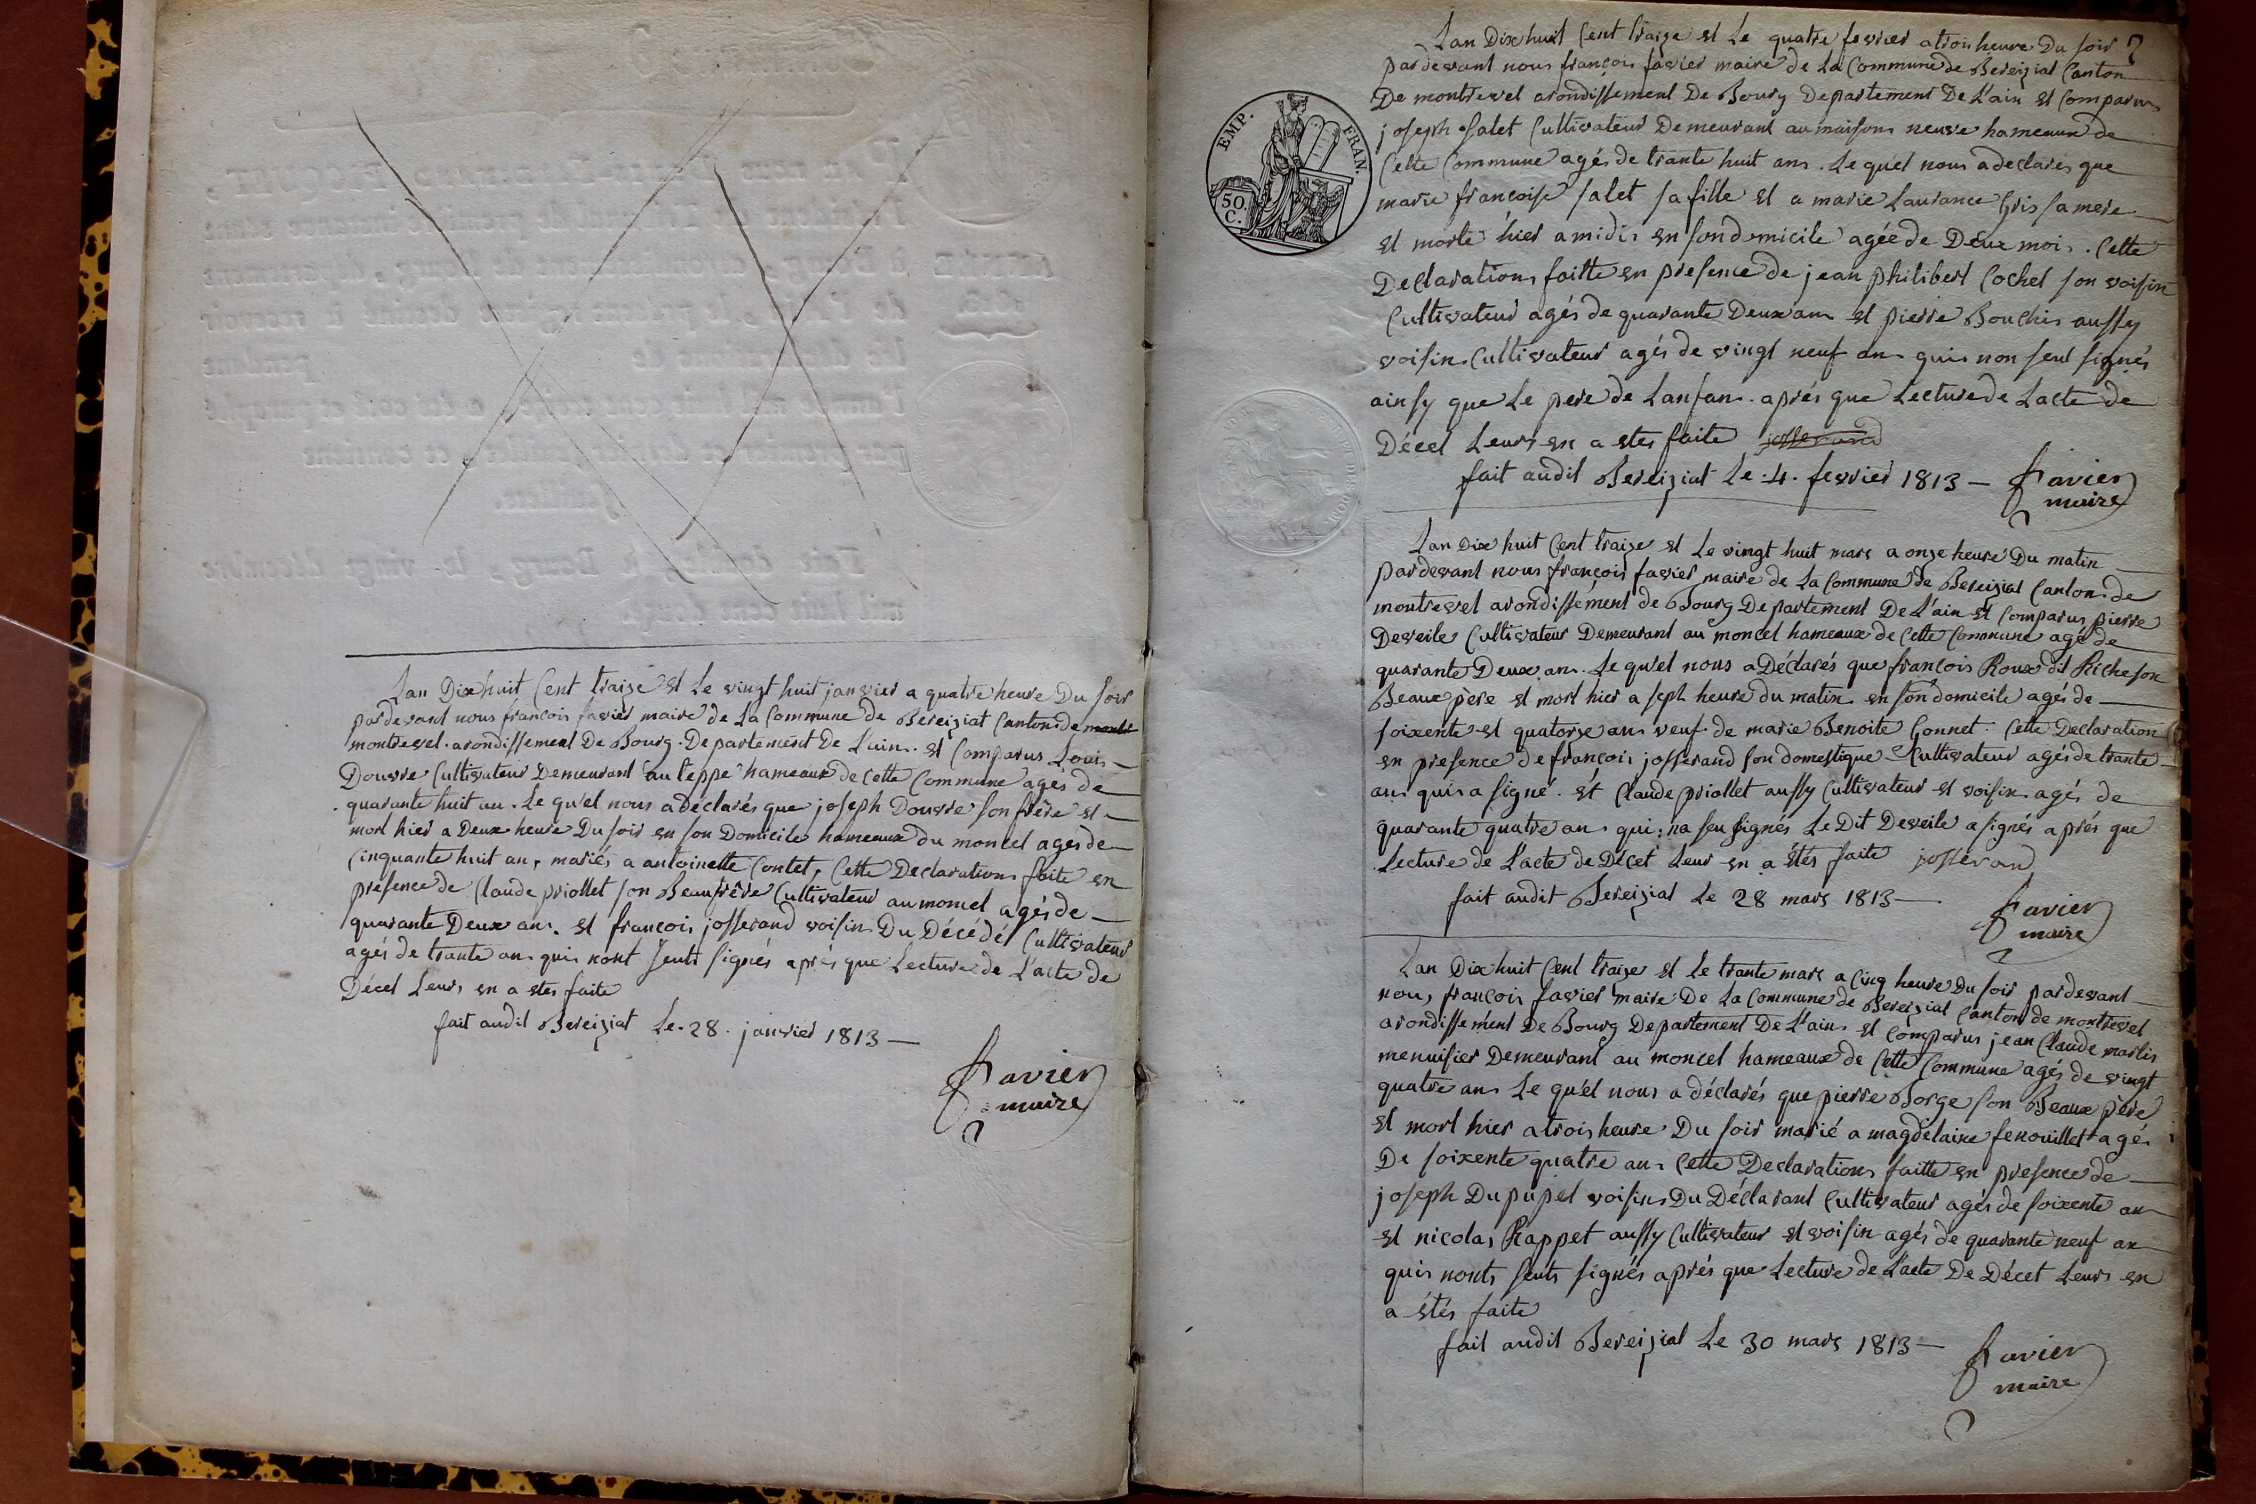 Lan Dix huit Cent traize et Le vingt huit janvier a quatre heure Du soir
pardevant nous françois favier maire de La Commune de Bereiziat Canton de
montrevel arondissement De Bourg Departement De L'ain et Comparus Louis
Douvre Cultivateur Demeurant au teppe hameaux de Cette Commune agés de
quarante huit an. Le qu'el nous a déclarés que joseph Douvre son frère et
mort hier a Deux heure Du soir en son Domicile hameaux du moncel agés de
Cinquante huit an, mariés a antoinette Contet, Cette Declaration faite en
présence de Claude priollet son Beaufrêre Cultivateur au moncel agés de
quarante Deux an. et françois josserand voisin Du Décédé Cultivateur
agés de trante an quis nont seuts signés après que Lecture de L'acte de
Décet Leurs en a etes faite
fait audit Bereiziat Le. 28. janvier 1813
favier
maire
EMP. FRAN.
50.
C.
Lan Dix huit Cent traize et Le quatre fevrier a trois heure Du soir
pardevant nous françois favier maire de La Commune de Bereiziat Canton
De montrevel arondissement De Bourg Departement De L'ain et Comparus
joseph salet Cultivateur Demeurant au maisons neuve hameaux de
Cette Commune agés de trante huit ans. Le quel nous a declarés que
marie françoise salet sa fille et a marie Laurance Gris sa mere
et morte hier a midis en son domicile agée de Deux mois. Cette
Declarations faitte en présence de jean philibert Cochet son voisin
Cultivateur agés de quarante Deux an et pierre Bouchis aussy
voisin Cultivateur agés de vingt neuf an quis non seut signés
ainsy que Le pere de Lanfan. aprés que Lecture de Lacte de
Décet Leurs en a etes faite josserand
fait audit Bereiziat Le .4. fevrier 1813
favier
maire
Lan Dix huit Cent traize et Le vingt huit mars a onze heure Du matin
pardevant nous françois favier maire de La Commune de Bereiziat Canton de
montrevel arondissement de Bourg Departement De L'ain et Comparus pierre
Deveile Cultivateur Demeurant au moncel hameaux de Cette Commune agé de
quarante Deux an. Le qu'el nous a Déclarés que françois Roux dit Riche son
Beaux père et mort hier a sept heure du matin en son domicile agés de
soixente et quatorze an veuf de marie Benoite Gonnet. Cette Declaration
en presence de françois josserand son domestique Cultivateur agés de trante
an quis a signé. et Claude priollet aussy Cultivateur et voisin agés de
quarante quatre an qui na seu signés Le Dit Deveile a signés aprés que
Lecture de L'acte de Décet Leur en a étés faite josserand
fait audit Bereiziat Le 28 mars 1813
favier
maire
Lan Dix huit Cent traize et le trante mars a Cinq heure Du soir pardevant
nous françois favier maire De La Commune de Bereiziat Canton de montrevel
arondissement De Bourg Departement De L'ain et Comparus jean Claude martin
menuisier Demeurant au moncel hameaux de Cette Commune agés de vingt
quatre an Le qu'el nous a déclarés que pierre Borge son Beaux père
et mort hier a trois heure Du soir marié a magdelaine fenouillet agés
De soixente quatre an Cette Declarations faitte en presence de
joseph Dupupet voisins Du Déclarant Cultivateur agés de soixente an
et nicolas Rappet aussy Cultivateur et voisin agés de quarante neuf an
quis nonts seuts signés aprés que Lecture de L'acte De Décet Leurs en
a étés faite
fait audit Bereiziat Le 30 mars 1813
favier
maire